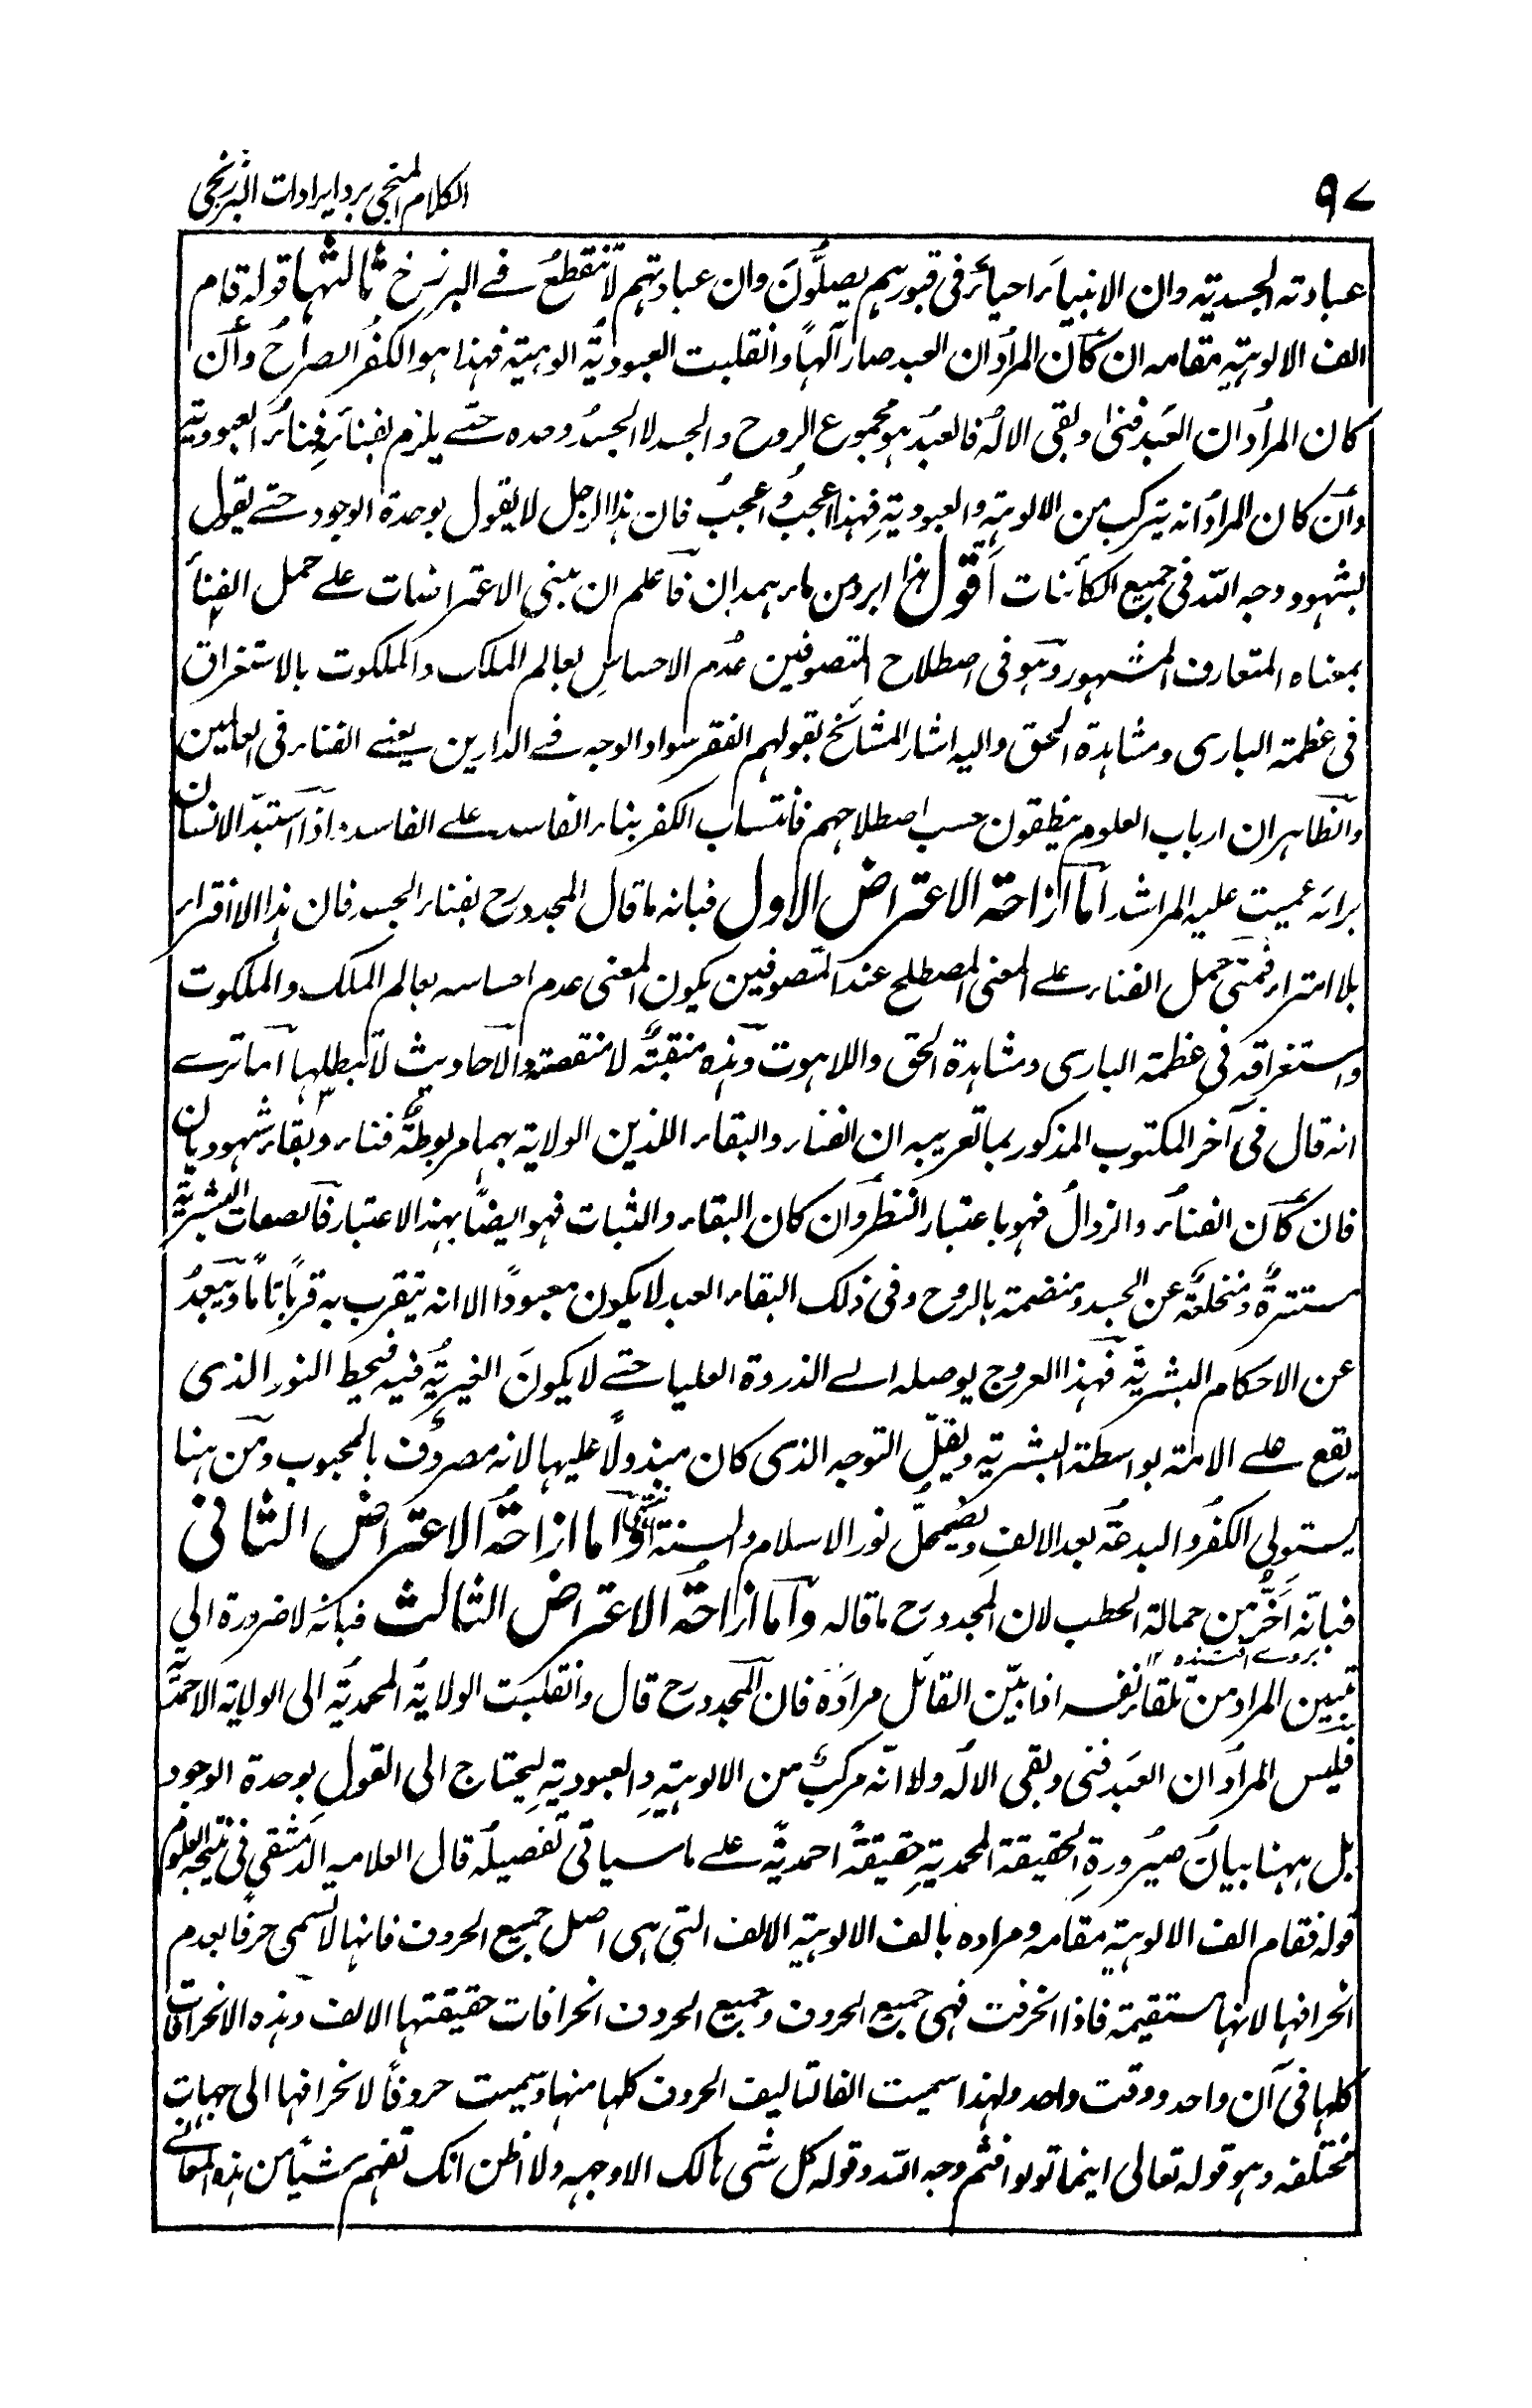 ٩٧
الكلام المنجى برد ايرادات البرزنجى
عبادته الجسدية وان الانبياء احياء فى قبورهم يصلُّونَ وان عبادتهم لا تنقطعُ فے البرزخ ثالثها قوله قام
الف الالوهية مقامه ان كان المرادُ ان العبد صار آلهاً وانقلبت العبوديةُ الوهية فهذا هو الكفرُ الصراحُ وان
كان المرادُ ان العَبد فنى وبقى الالهُ فالعبدُ هو مجموع الروح والجسد لا الجسدُ وحده حتے يلزم بفنائهِ فناءُ العبودية
وان كان المرادُ انه يتركب من الالوهيةِ والعبوديةِ فهذا اعجبُ واعجبُ فان هذا الرجل لا يقول بوحدة الوجود حتے يقول
بشهود وجه الله فى جميع الكائنات اقول هذا ابرد من ماء همدان فاعلم ان مبنى الاعتراضات علے حمل الفناء
بمعناه المتعارف المشهور وهو فى اصطلاح المتصوفين عدم الاحساس بعالم الملك والملكوت بالاستغراق
فى عظمة البارى ومشاهدة الحق واليه اشار المشائخ بقولهم الفقر سواد الوجه فے الدارين يعنے الفناء فى العالمين
والظاهر ان ارباب العلوم ينطقون حسب اصطلاحهم فانتساب الكفر بناء الفاسد علے الفاسد: اذا استبدّ الانسان
برائه عميت عليه المراشد اما ازاحة الاعتراض الاول فبانه ما قال المجدد رح بفناء الجسد فان هذا الا افتراء
بلا امتراء فمتى حمل الفناء علے المعنى المصطلح عند المتصوفين يكون المعنى عدم احساسه بعالم الملك والملكوت
واستغراقه فى عظمة البارى ومشاهدة الحق واللاهوت وهذه منقبةٌ لا منقصة والاحاديث لا تبطلها اما ترے
انه قال فى آخر المكتوب المذكور بما تعريبه ان الفناء والبقاء اللذين الولاية بهما مربوطةٌ فناء وبقاء شهوديان
فان كان الفناءُ والزوالُ فهو باعتبار النظر وان كان البقاء والثبات فهو ايضاً بهذا الاعتبار فالصفات البشرية
مستترةٌ ومنخلعةٌ عن الجسد ومنضمة بالروح وفى ذلك البقاء العبد لا يكون معبوداً الا انه يتقرب به قرباً تاماً ويبعدُ
عن الاحكام البشرية فهذا العروج يوصله الے الذروة العليا حتے لا يكونَ الغيريةُ فيه فيحيط النور الذى
يقع علے الامة بواسطة البشرية ويقلّ التوجه الذى كان مبذولاً عليها لانه مصروفٌ بالمحبوب ومن هنا
يستولى الكفرُ والبدعة بعد الالف ويضمحلُّ نور الاسلام والسنة انتهى واما ازاحةُ الاعتراض الثانى
فبانّه اَخَّرُ من حمالة الحطب لان المجدد رح ما قاله واما ازاحةُ الاعتراض الثالث فبانه لا ضرورة الى
تبيين المراد من تلقاء نفسه اذا بيّن القائل مرادَه فان المجدد رح قال وانقلبت الولايةُ المحمديةُ الى الولاية الاحمدية
فليس المرادُ ان العبَد فنى وبقى الاله ولا انّه مركبٌ من الالوهيةِ والعبوديةِ ليحتاج الى القول بوحدة الوجود
بل ههنا بيانُ صيرورةِ الحقيقة المحمديةِ حقيقةً احمديةً علے ما سياتى تفصيلُه قال العلامة الدمشقى فى نتيجة العلوم
قوله فقام الف الالوهية مقامه ومراده بالف الالوهية الالف التى هى اصل جميع الحروف فانها لا تسمى حرفاً بعدم
انحرافها لانها مستقيمة فاذا انحرفت فهى جميع الحروف وجميع الحروف انحرافات حقيقتها الالف وهذه الانحرافات
كلها فى آن واحد ووقت واحد ولهذا سميت الفا لتاليف الحروف كلها منها وسميت حروفاً لانحرافها الى جهات
مختلفة وهو قوله تعالى اينما تولوا فثم وجه الله وقوله كل شى هالك الا وجهه ولا اظن انك تفهم شيأ من هذه المعانے